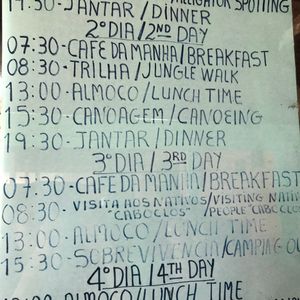 19:30-JANTAR/DINNER ALLIGATOR SPOTTING
2º DIA/2ND DAY
07:30-CAFE DA MANHA/BREAKFAST
08:30-TRILHA/JUNGLE WALK
13:00-ALMOÇO/LUNCH TIME
15:30-CANOAGEM/CANOEING
19:30-JANTAR/DINNER
3º DIA/3RD DAY
07:30-CAFE DA MANHA/BREAKFAST
08:30-VISITA AOS NATIVOS/VISITING NATIV
"CABOCLOS" PEOPLE "CABOCLO
13:00-ALMOÇO/LUNCH TIME
15:30-SOBREVIVENCIA/CAMPING OU
4º DIA/4TH DAY
ALMOCO/LUNCH TIME